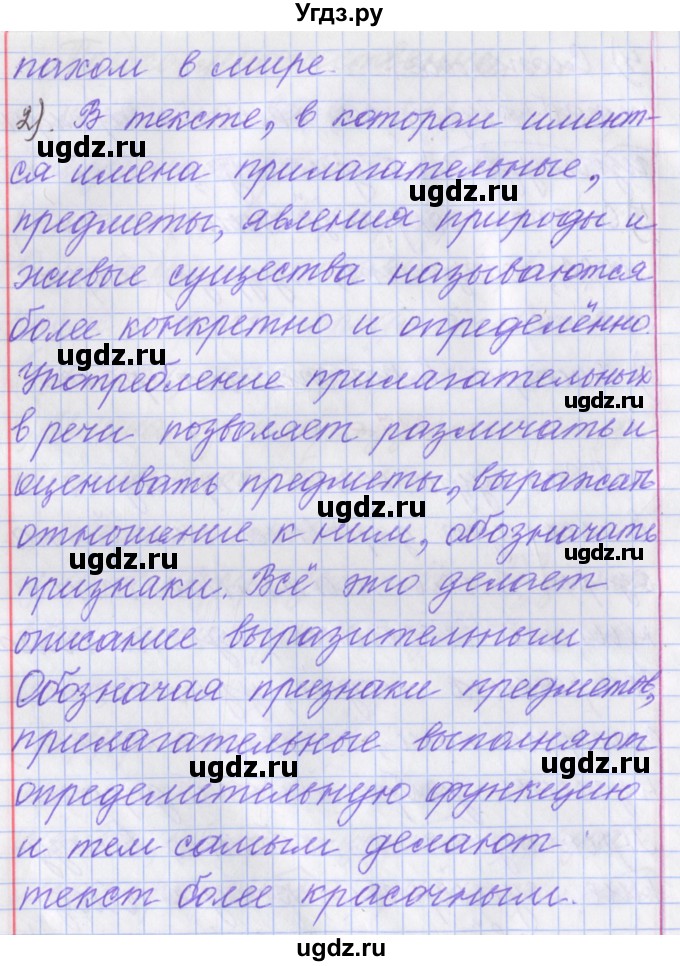 Угдз.ру
пахом в мире.
2). В тексте, в котором имеют-
ugdz.ru
ся имена прилагательные,
ugdz.ru
предметы, явления природы и
живые существа называются
более конкретно и определённо.
ugdz.ru
Употребление прилагательных
ugdz.ru
в речи позволяет различать и
оценивать предметы, выражать
ugdz.ru
отношение к ним, обозначать
ugdz.ru
ugdz.ru
признаки. Всё это делает
описание выразительным
Обозначая признаки предметов,
прилагательные выполняют
ugdz.ru
ugdz.ru
определительную функцию
и тем самым делают
текст более красочным.
ugdz.ru